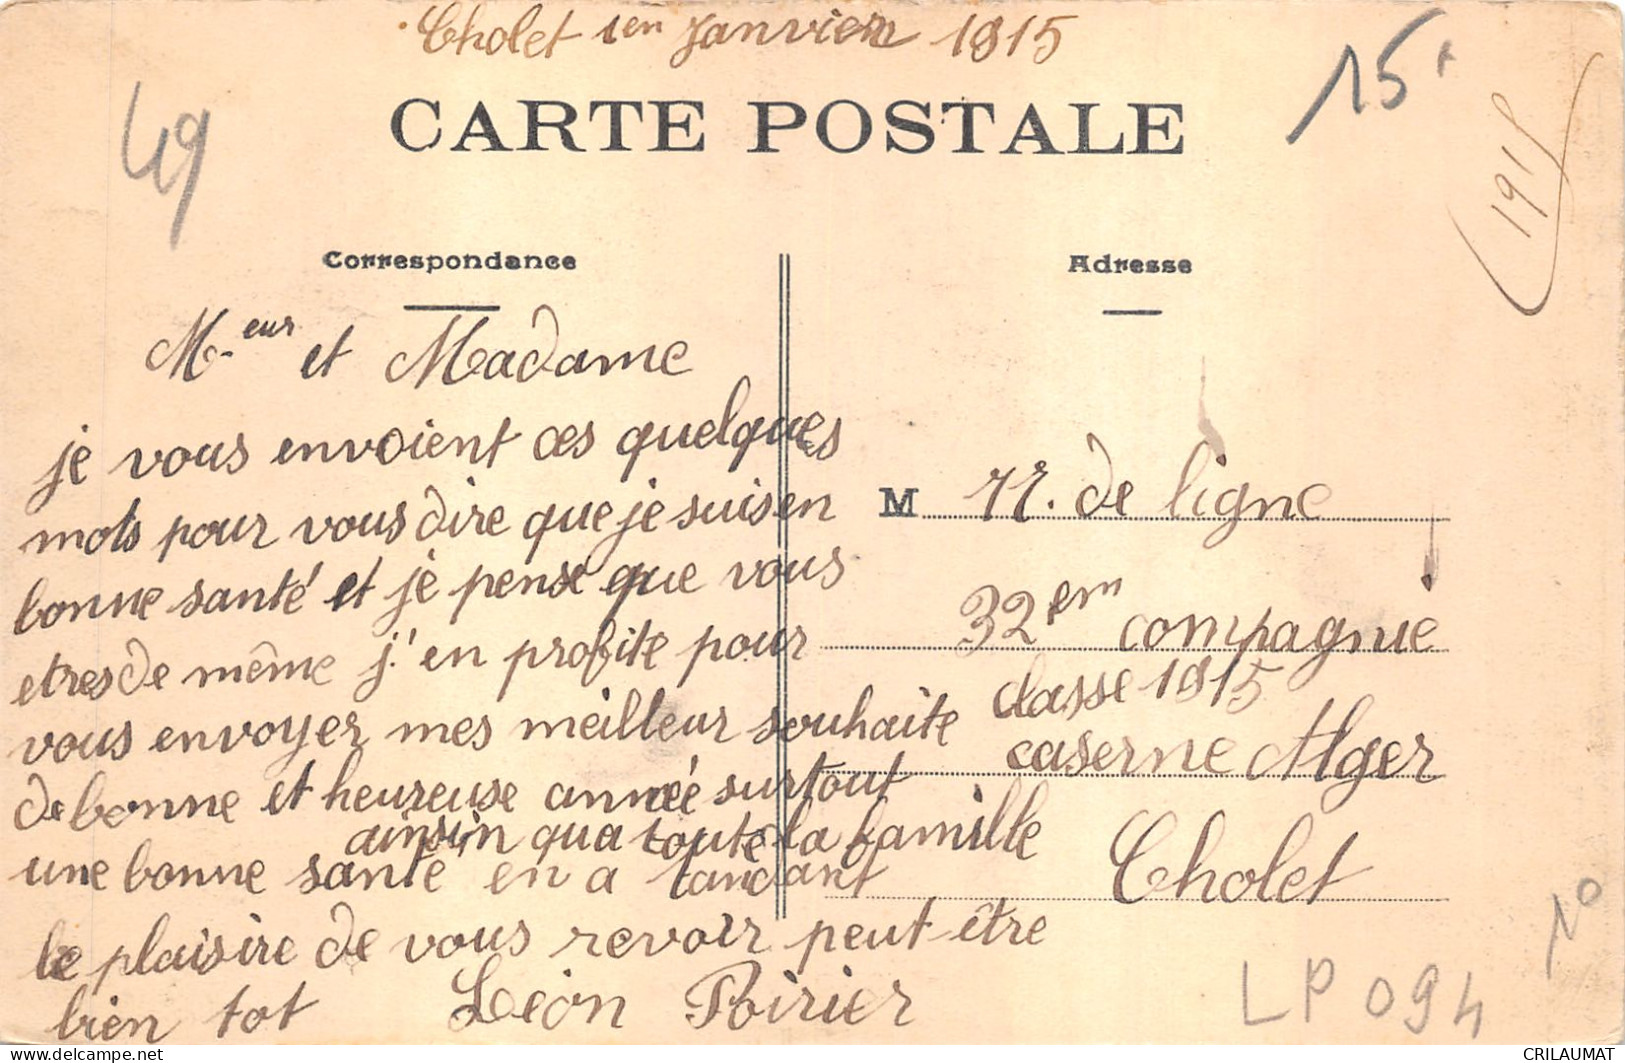 Cholet 1er Janvier 1915
15
49
1915
CARTE POSTALE
Correspondance
Adresse
M.eur et Madame
je vous envoient ces quelques
mots pour vous dire que je suis en
bonne santé et je pense que vous
etres de même j'en profite pour
vous envoyer mes meilleur souhaite
de bonne et heureuse année surtout
ainsin qua toute la famille
une bonne santé en a tandant
le plaisire de vous revoir peut être
bien tot Léon Poirier
M 77. de ligne
32em compagnie
classe 1915
caserne Alger
Cholet
LP 094
CRILAUMAT